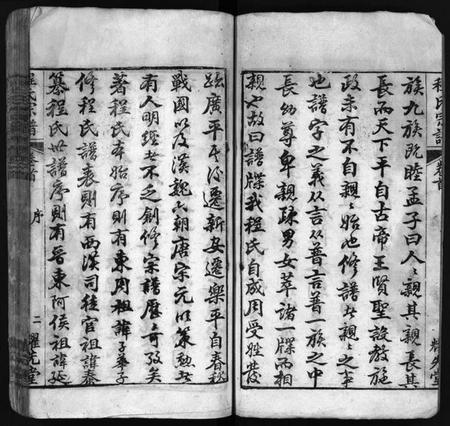 程氏宗譜 卷首
族九族既睦孟子曰人人親其親長其
長而天下平自古帝王賢聖設教施
政未有不自親親始也修譜者親親之事
也譜字之義从言从普言普一族之中
長幼尊卑親疎男女萃諸一牒而相
親也故曰譜牒我程氏自成周受姓發
跡廣平氏後遷新安遷樂平自春秋
戰國以及漢魏六朝唐宋元以策勲者
有人明經者不乏創修宗譜歷歷可攷矣
著程氏本始序則有東周祖諱子華子
修程氏譜表則有西漢司徒官祖諱秦
纂程氏世譜序則有晉東阿侯祖諱延
程氏宗譜 卷首 序 二 耀先堂